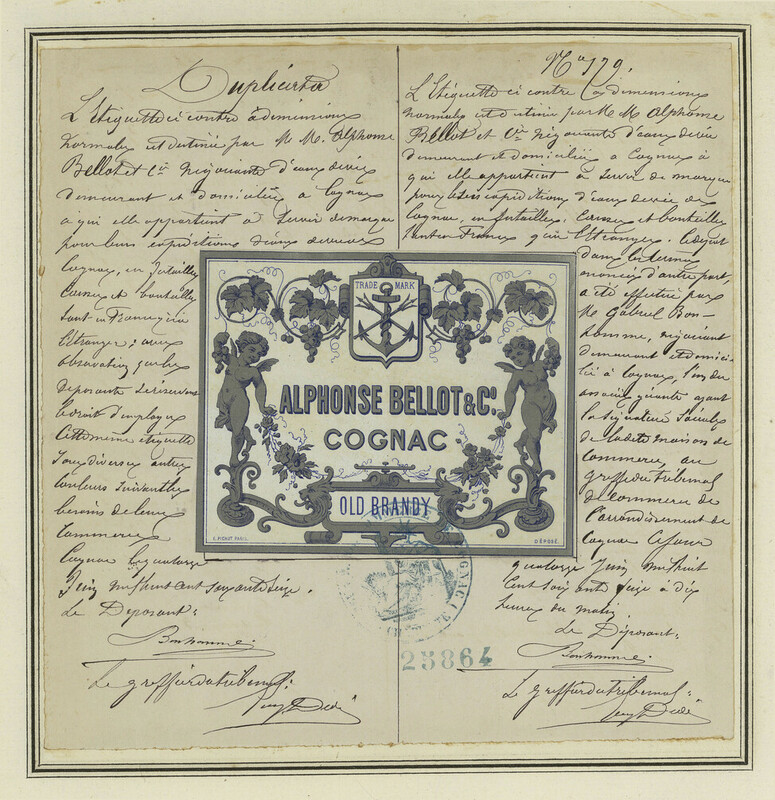 Duplicata
L'Etiquette ci contre à dimensions
normales est destinée par M. M. Alphonse
Bellot et Cie négociants d'eaux de vie
demeurant et domiciliés à Cognac
à qui elle appartient à servir de marque
pour leurs expéditions d'eaux de vie de
Cognac, en futailles
Caisses et bouteilles
tant en France qu'à
l'Etranger; avec
observation que les
déposants se réservent
le droit d'employer
cette même étiquette
sous diverses autres
couleurs suivant les
besoins de leur
Commerce
Cognac le quatorze
Juin mil huit cent soixante seize.
Le Déposant:
Bonhomme
Le greffier du tribunal:
No 179.
L'Etiquette ci contre à dimensions
normales est destinée par M. M. Alphonse
Bellot et Cie négociants d'eaux de vie
demeurant et domiciliés à Cognac à
qui elle appartient à servir de marque
pour leurs expéditions d'eaux de vie de
Cognac, en futailles, Caisses et bouteilles
tant en France qu'à l'Etranger. Le dépôt
dans les termes
énoncés d'autre part,
a été effectué par
M. Gabriel Bon-
homme, négociant
demeurant et domici-
lié à Cognac, l'un des
associés gérants ayant
la signature sociale
de ladite maison de
Commerce, au
greffe du Tribunal
de Commerce de
l'arrondissement de
Cognac ce jour
quatorze Juin mil huit
Cent soixante seize à dix
heures du matin
Le Déposant:
Bonhomme
Le greffier du tribunal:
TRADE MARK
ALPHONSE BELLOT & Co.
COGNAC
OLD BRANDY
L. PICHOT PARIS.
DÉPOSÉ.
25864